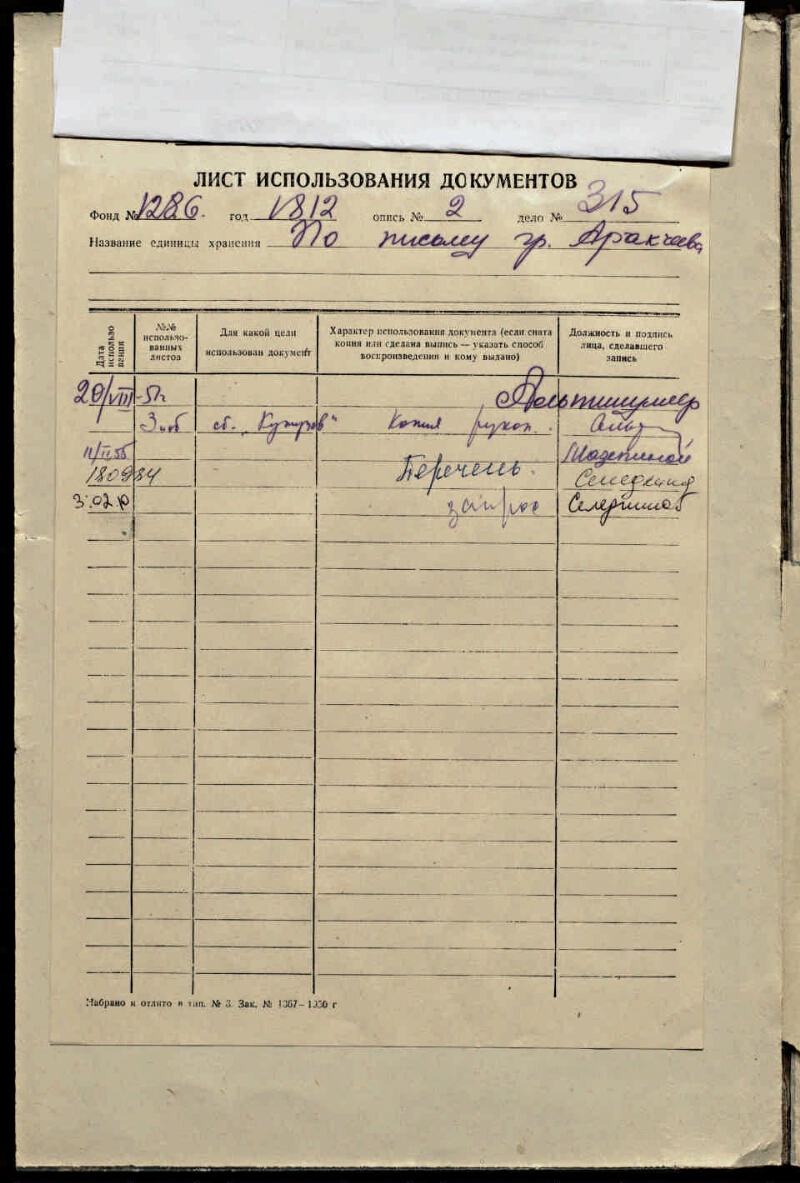 ЛИСТ ИСПОЛЬЗОВАНИЯ ДОКУМЕНТОВ
Фонд № 1286. год 1812 опись № 2 дело № 315
Название единицы хранения По письму гр. Аракчеева
Дата использования
№№ использованных листов
Для какой цели использован документ
Характер использования документа (если снята копия или сделана выпись — указать способ воспроизведения и кому выдано)
Должность и подпись лица, сделавшего запись
20/VIII-51г
3 и об сб. „Кутузов" Копия рукоп.
11/II 55
180984 Перечень.
3.02 запрос
Набрано и отлито в тип. № 3. Зак. № 1367—1950 г